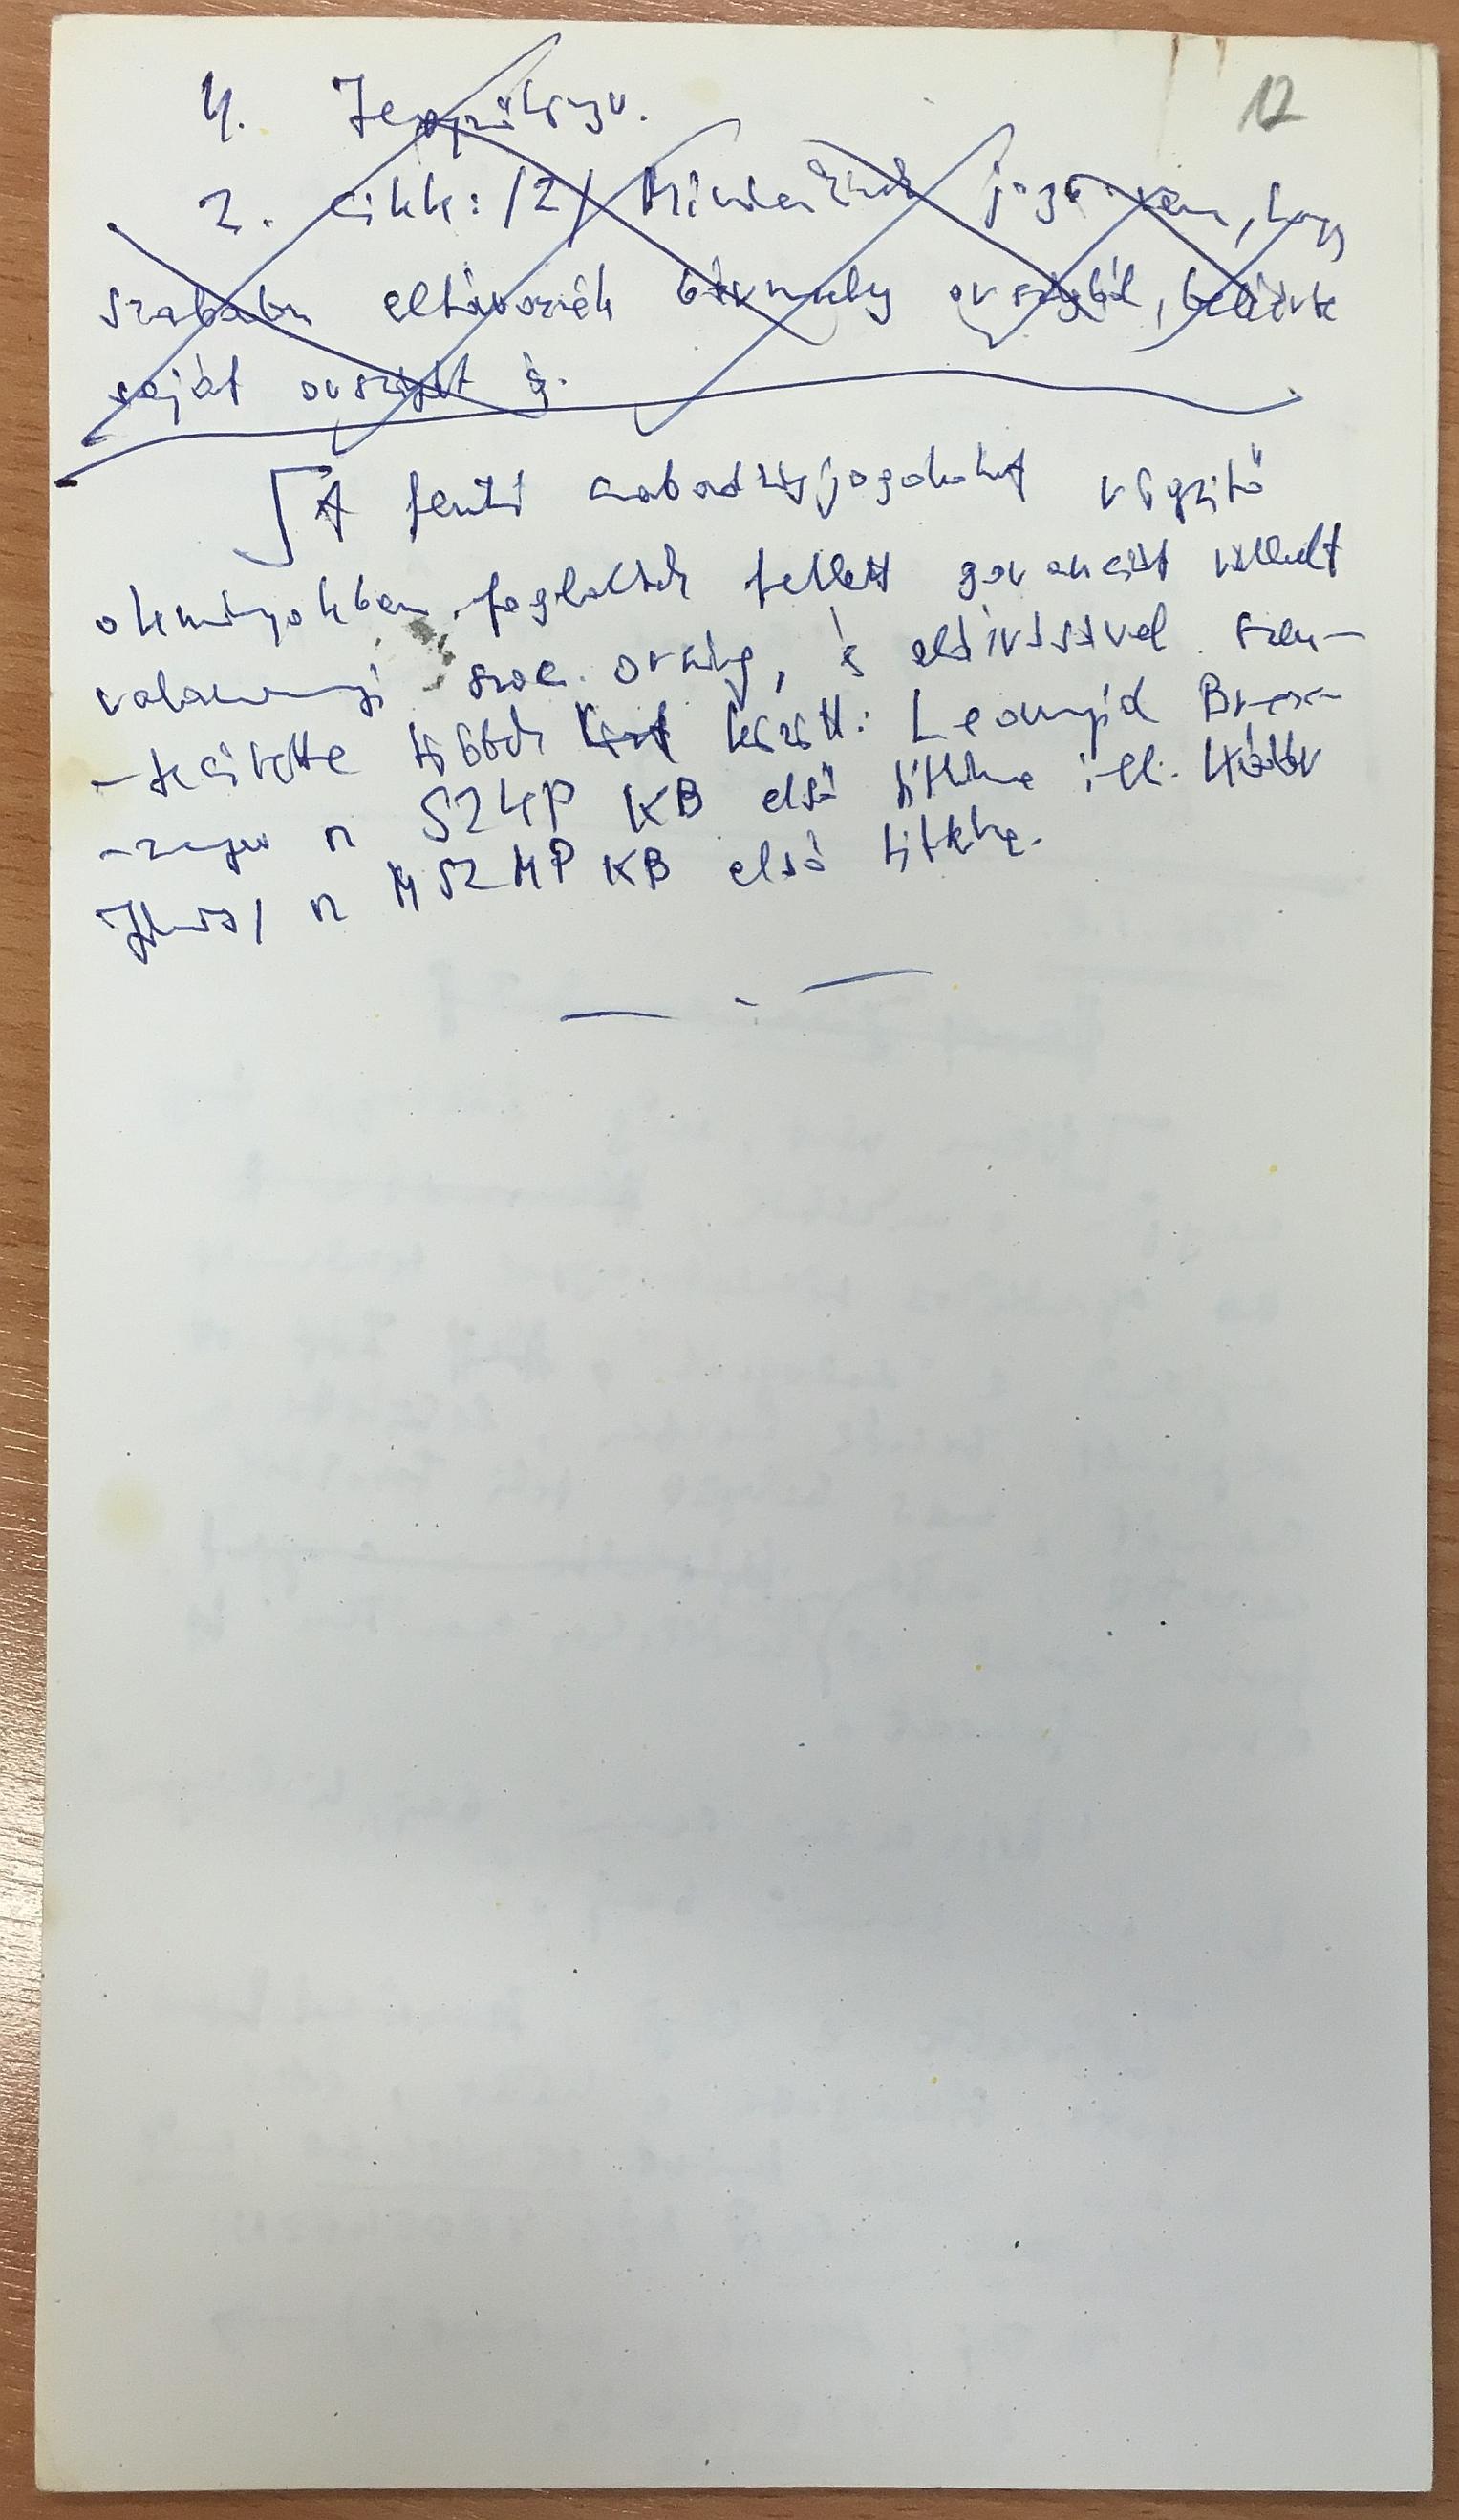 12
4. Jegyzőkönyv.
2. cikk: /2/ Mindenkinek joga van, hogy
szabadon eltávozzék bármely országból, beleértve
saját országát is.
A fenti szabadságjogokat rögzítő
okmányokban foglaltak felett garanciát vállalt
valamennyi szoc. ország, és aláírásával szen-
-tesítette többek között: Leonyid Brezs-
-nyev a SZKP KB első titkára ill. Kádár
János, a MSZMP KB első titkára.